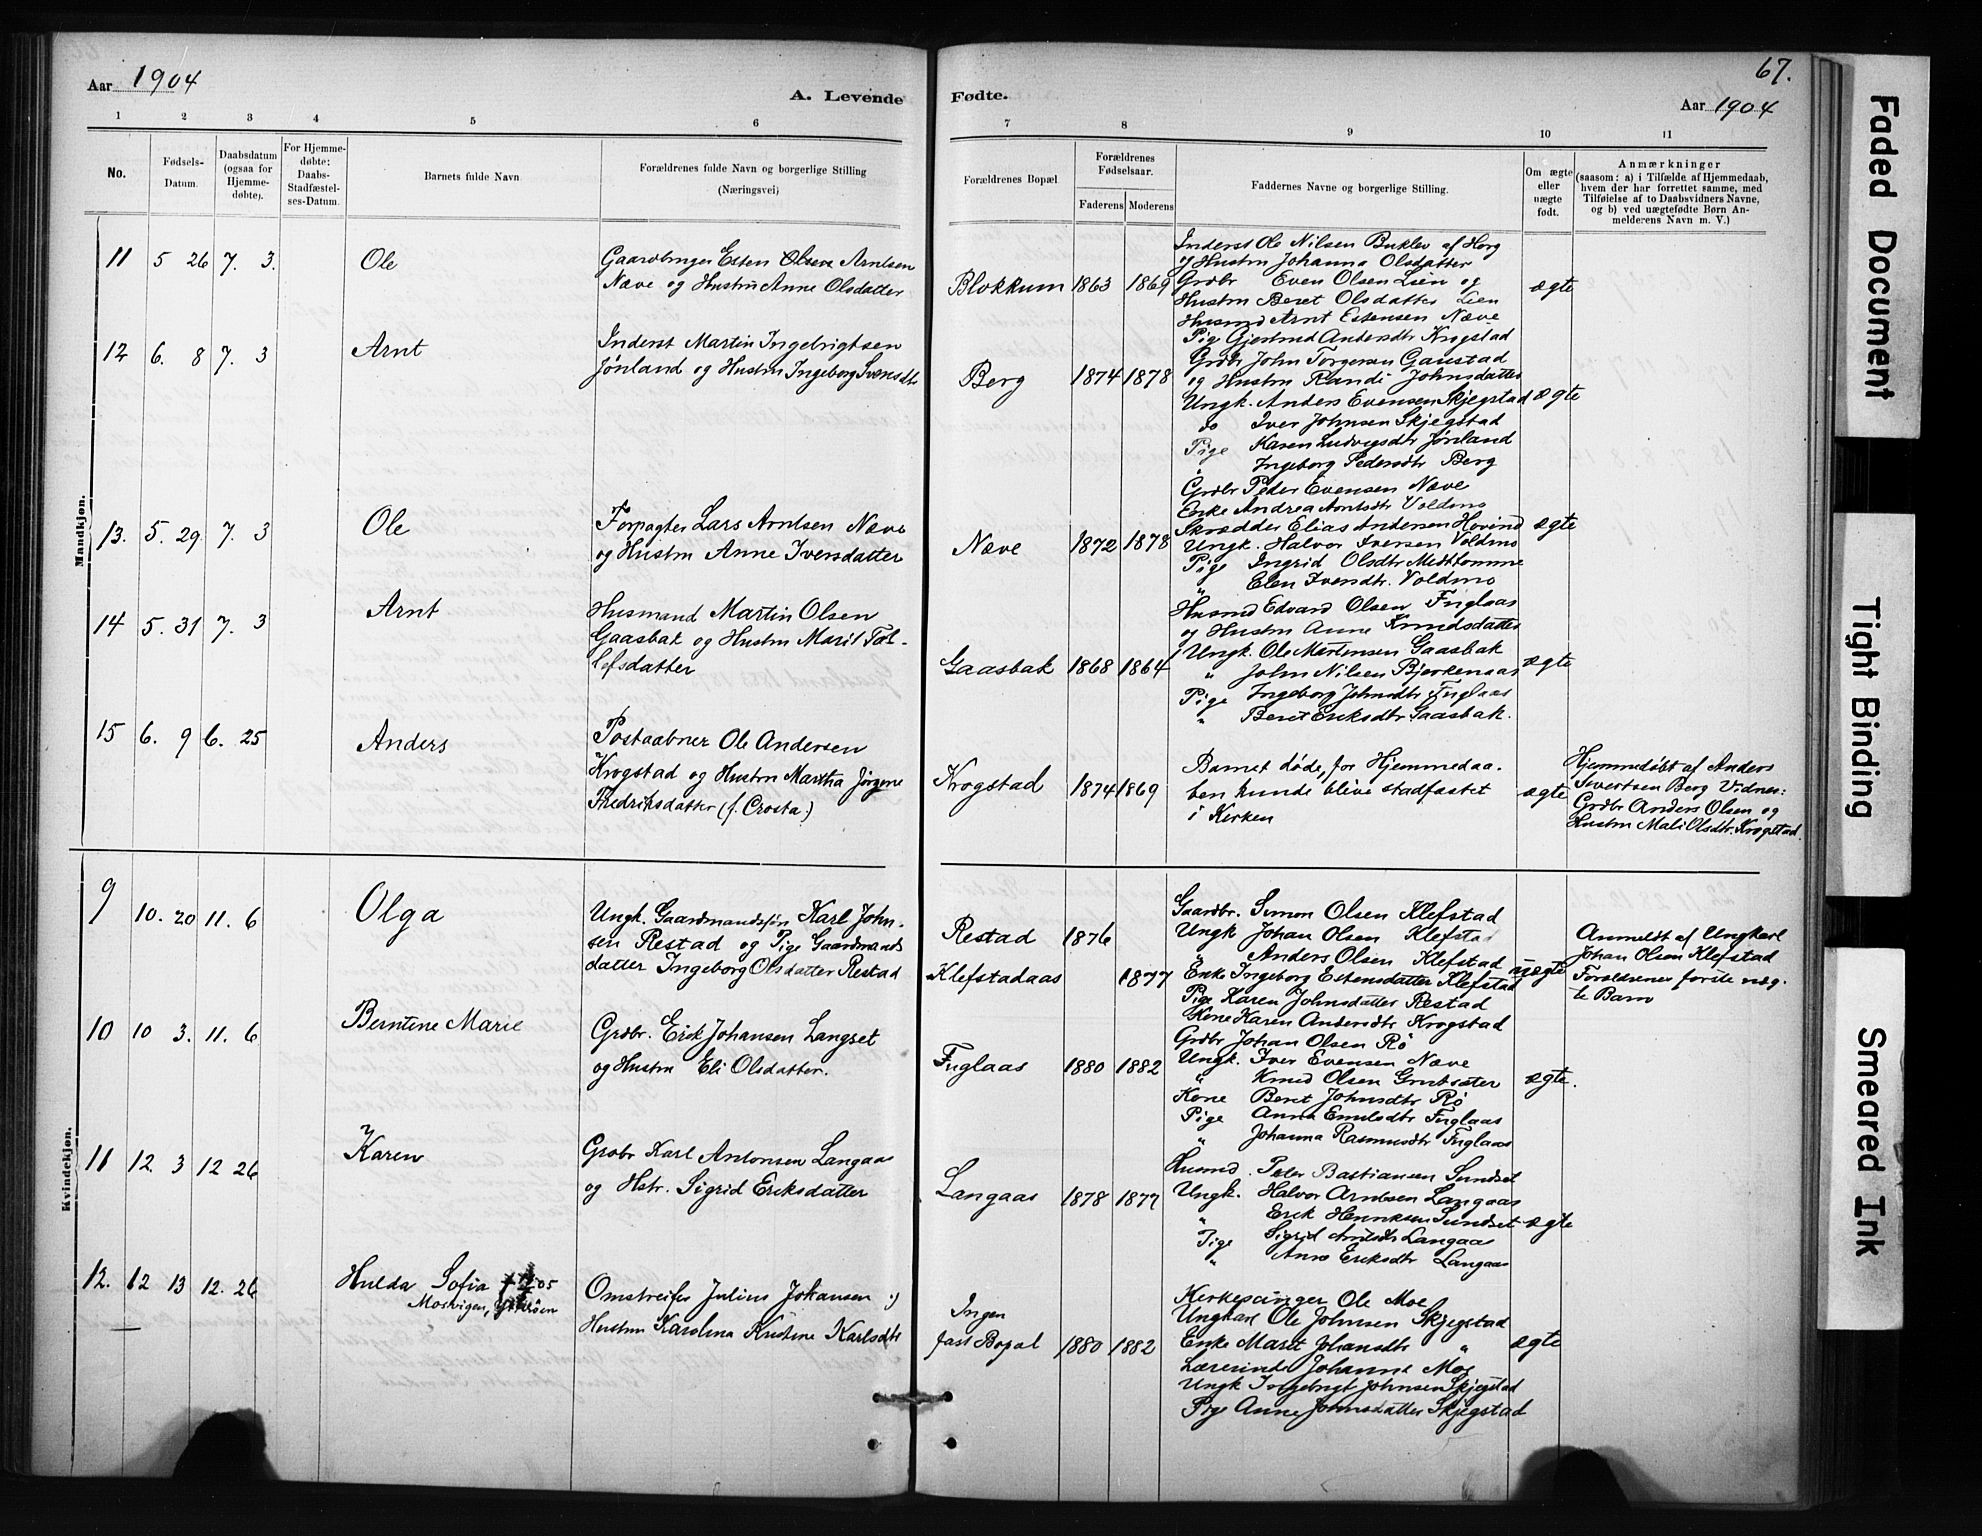 Aar 1904
A. Levende
1 2 3 4 5 6
No.
Fødsels-
Datum.
Daabsdatum
(ogsaa for
Hjemme-
døbte).
For Hjemme-
døbte:
Daabs-
Stadfæstel-
ses-Datum.
Barnets fulde Navn
Forældrenes fulde Navn og borgerlige Stilling
(Næringsvei)
67.
Fødte.
Aar 1904
7 8 9 10 11
Forældrenes Bopæl.
Forældrenes
Fødselsaar.
Faderens Moderens
Faddernes Navne og borgerlige Stilling.
Om ægte
eller
uægte
født.
Anmærkninger
(saasom: a) i Tilfælde af Hjemmedaab,
hvem der har forrettet samme, med
Tilføielse af to Daabsvidners Navne,
og b) ved uægtefødte Børn An-
melderens Navn m. V.)
Mandkjøn.
11 5 26 7. 3. Ole
Gaardbruger Esten Olsen Arntsen
Næve og Hustru Anne Olsdatter
Blokkum 1863 1869
Inderst Ole Nilsen Buklev af Horg
og Hustru Johanna Olsdatter
Grdbr Even Olsen Lien og
Hustru Beret Olsdatter Lien
Husmd Arnt Estensen Næve
Pige Gjertrud Andersdtr Krogstad
ægte
12 6. 8 7. 3 Arnt
Inderst Martin Ingebrigtsen
Jønland og Hustru Ingeborg Svensdtr
Berg 1874 1878
Grdbr John Torgersen Gaustad
og Hustru Randi Johnsdatter
Ungk. Anders Evensen Skjegstad
do Iver Johnsen Skjegstad
Pige Karen Ludvigsdtr Jønland
Ingeborg Pedersdtr Berg
ægte
13. 5. 29 7. 3 Ole
Forpagter Lars Arntsen Næve
og Hustru Anne Iversdatter
Næve 1872 1878
Grdbr Peder Evensen Næve
Enke Andrea Arntsdtr Voldmo
Skrædder Elias Andersen Hovind
Ungk. Halvor Iversen Voldmo
Pige Ingrid Olsdtr Medthomme
" Elen Iversdtr. Voldmo
ægte
14 5. 31 7. 3 Arnt
Husmand Martin Olsen
Gaasbak og Hustru Marit Tol-
lefsdatter
Gaasbak 1868 1864
Husmd Edvard Olsen Fuglaas
og Hustru Anne Knudsdatter
Ungk. Ole Martensen Gaasbak
" John Nilsen Bjerkenaas
Pige Ingeborg Johnsdtr Fuglaas
" Beret Eriksdtr Gaasbak.
ægte
15 6. 9 6. 25 Anders
Postaabner Ole Andersen
Krogstad og Hustru Martha Jørgine
Fredriksdatter (f. Crosta.)
Krogstad 1874 1869
Barnet døde, før Hjemmedaa-
ben kunde blive stadfæstet
i Kirken
ægte
Hjemmedøbt af Anders
Sivertsen Berg Vidner:
Grdbr Anders Olsen og
Hustru Mali Olsdtr. Krogstad
Kvindekjøn.
9 10. 20 11. 6 Olga
Ungk. Gaardmandssøn Karl John-
sen Restad og Pige Gaardmands
datter Ingeborg Olsdatter Restad
Restad 1876
Klefstadaas 1877
Gaardbr. Simon Olsen Klefstad
Ungk Johan Olsen Klefstad
" Anders Olsen Klefstad
Enke Ingeborg Estensdatter Klefstad
Pige Karen Johnsdatter Restad
Kone Karen Andersdtr Krogstad
uægte
Anmeldt af Ungkarl
Johan Olsen Klefstad
Forældrenes første uæg-
te Barn
10 10 3. 11. 6 Berntine Marie
Grdbr. Erik Johansen Langset
og Hustru Eli Olsdatter.
Fuglaas 1880 1882
Grdbr Johan Olsen Rø
Ungk. Iver Evensen Næve
" Knud Olsen Grutsæter
Kone Beret Johnsdtr Rø
Pige Anna Emilsdtr Fuglaas
" Johanna Rasmusdtr Fuglaas
ægte.
11 12 3 12 26 Karen
Grdbr Karl Antonsen Langaas
og Hstr. Sigrid Eriksdatter
Langaas 1878 1877
Husmd. Peter Bastiansen Sundset
Ungk. Halvor Arntsen Langaas
" Erik Henriksen Sundset
Pige Sigrid Arntsdtr Langaas
" Anne Eriksdtr Langaas
ægte
12. 12 13 12. 26 Hulda Sofia † 05
Mosvigen, Ytterøen
Omstreifer Julius Johansen :)
Hustru Karolina Kristine Karlsdtr
Ingen
fast Bopæl 1880 1882
Kirkesanger Ole Moe
Ungkarl Ole Johnsen Skjegstad
Enke Marit Johansdtr "
Lærerinde Johanne Moe
Ungk Ingebrigt Johnsen Skjegstad
Pige Anne Johnsdatter Skjegstad
ægte
Faded Document
Tight Binding
Smeared Ink